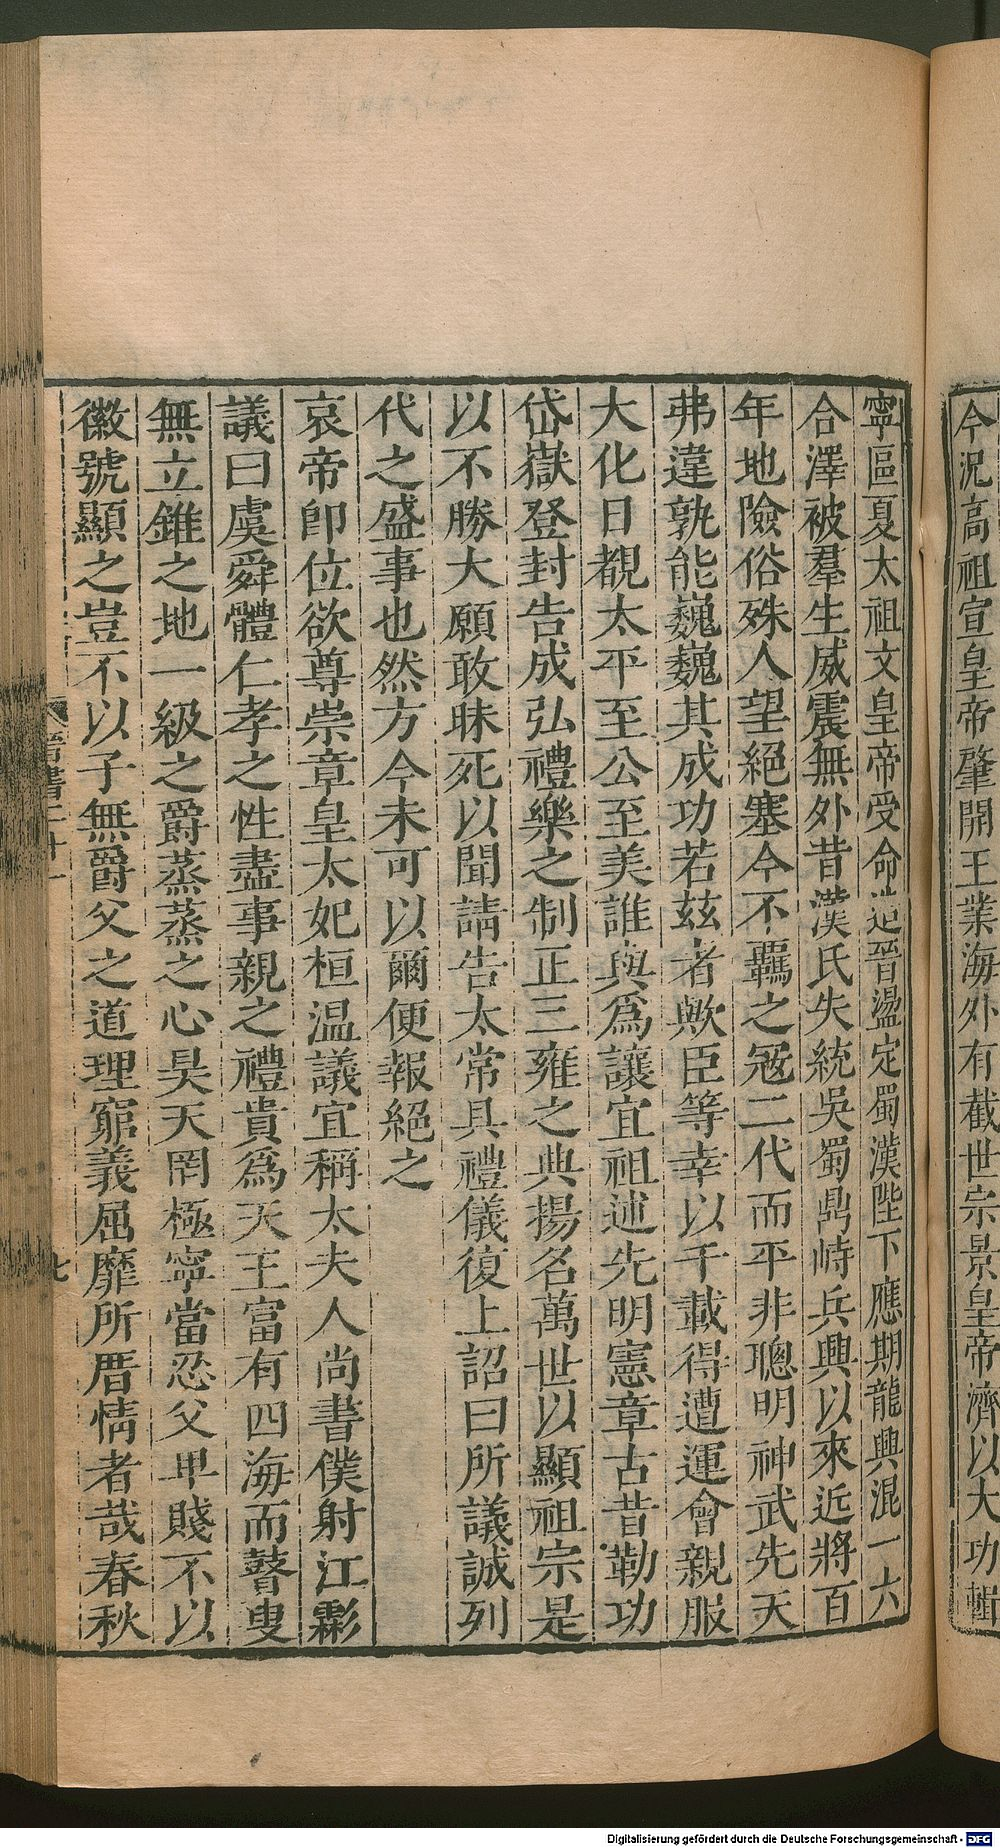 今況高祖宣皇帝肇開王業海外有截世宗景皇帝濟以大功輯
寧區夏太祖文皇帝受命造晉盪定蜀漢陛下應期龍興混一六
合澤被羣生威震無外昔漢氏失統吳蜀鼎峙兵興以來近將百
年地險俗殊人望絕塞今不羈之寇二代而平非聰明神武先天
弗違孰能巍巍其成功若茲者歟臣等幸以千載得遭運會親服
大化日覩太平至公至美誰與爲讓宜祖述先明憲章古昔勒功
岱嶽登封告成弘禮樂之制正三雍之典揚名萬世以顯祖宗是
以不勝大願敢昧死以聞請告太常具禮儀復上詔曰所議誠列
代之盛事也然方今未可以爾便報絕之
哀帝卽位欲尊崇章皇太妃桓温議宜稱太夫人尚書僕射江虨
議曰虞舜體仁孝之性盡事親之禮貴爲天王富有四海而瞽叟
無立錐之地一級之爵蒸蒸之心昊天罔極寧當忍父卑賤不以
徽號顯之豈不以子無爵父之道理窮義屈靡所厝情者哉春秋
晉書二十一
七
Digitalisierung gefördert durch die Deutsche Forschungsgemeinschaft - DFG